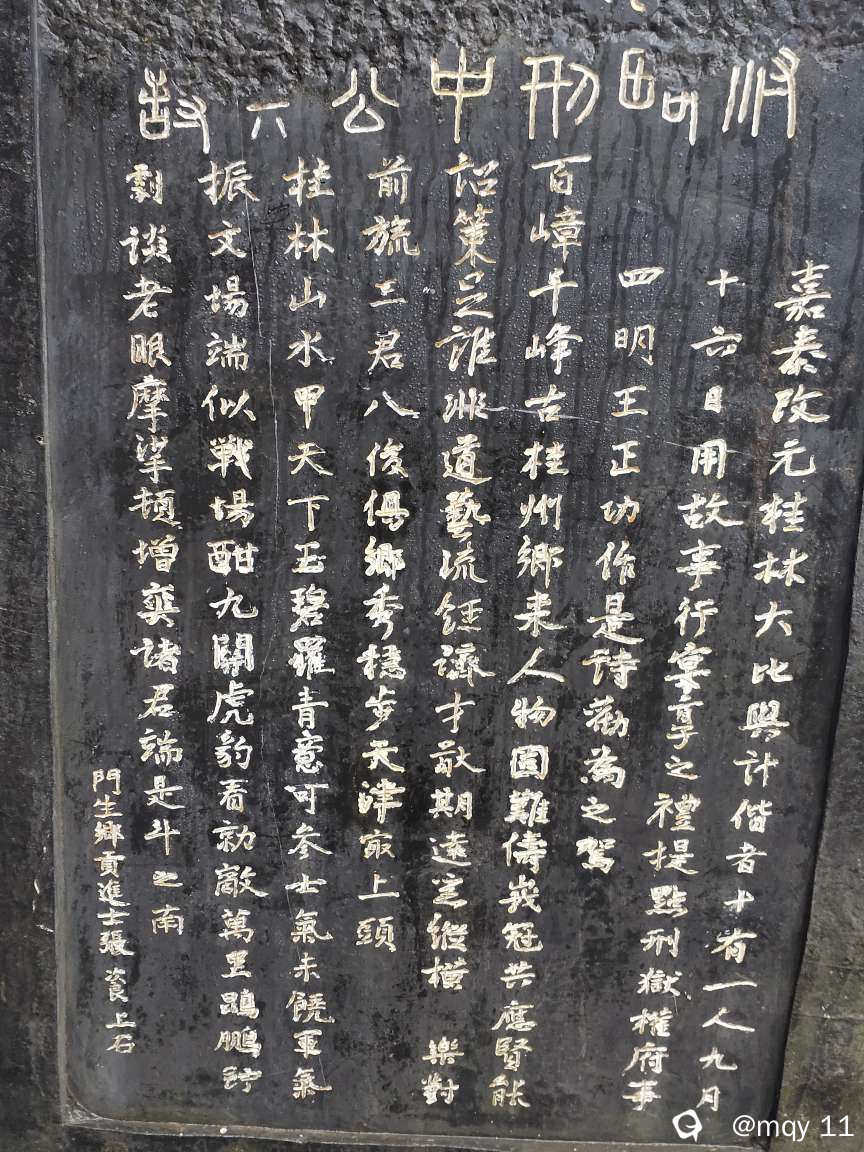 刑中公六
嘉泰改元桂林大比與計偕者十有一人九月
十六日用故事行宴享之禮提點刑獄權府事
四明王正功作是詩勸為之駕
百嶂千峰古桂州鄉來人物固難儔峩冠共應賢能
詔策足誰非道藝流經濟才猷期遠業縱横 樂對
前旒三君八俊俱鄉秀穩步天津冣上頭
桂林山水甲天下玉碧羅青意可參士氣未饒軍氣
振文場端似戰場酣九關虎豹看勍敵萬里鵾鵬竚
劇談老眼摩挲頓增爽諸君端是斗之南
門生鄉貢進士張上石
@mqy 11